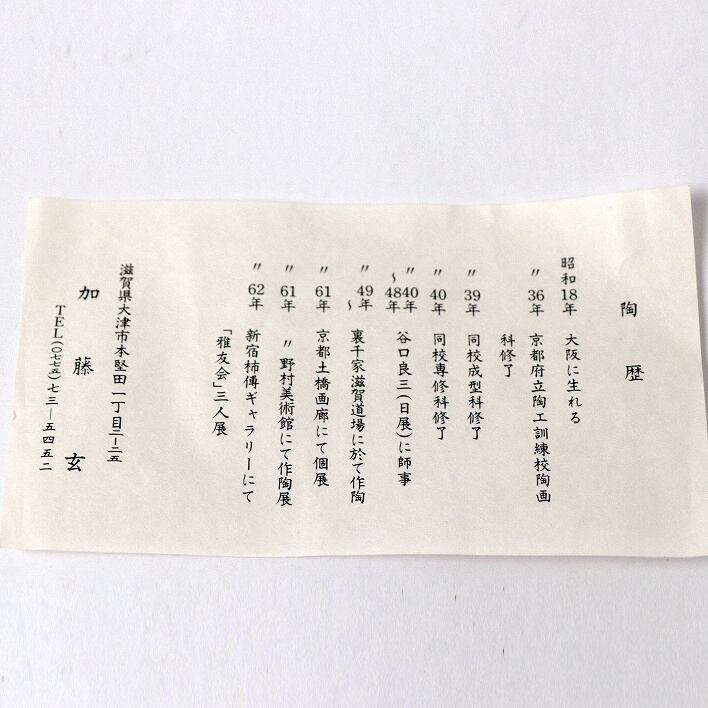 陶歴
昭和18年 大阪に生れる
〃36年 京都府立陶工訓練校陶画
科修了
〃39年 同校成型科修了
〃40年 同校専修科修了
〃40年~48年 谷口良三(日展)に師事
〃49年~ 裏千家滋賀道場に於て作陶
〃61年 京都土橋画廊にて個展
〃61年 〃野村美術館にて作陶展
〃62年 新宿柿傳ギャラリーにて
「雅友会」三人展
滋賀県大津市本堅田一丁目三ー二五
加藤玄
TEL(〇七七五)七三ー五四五二